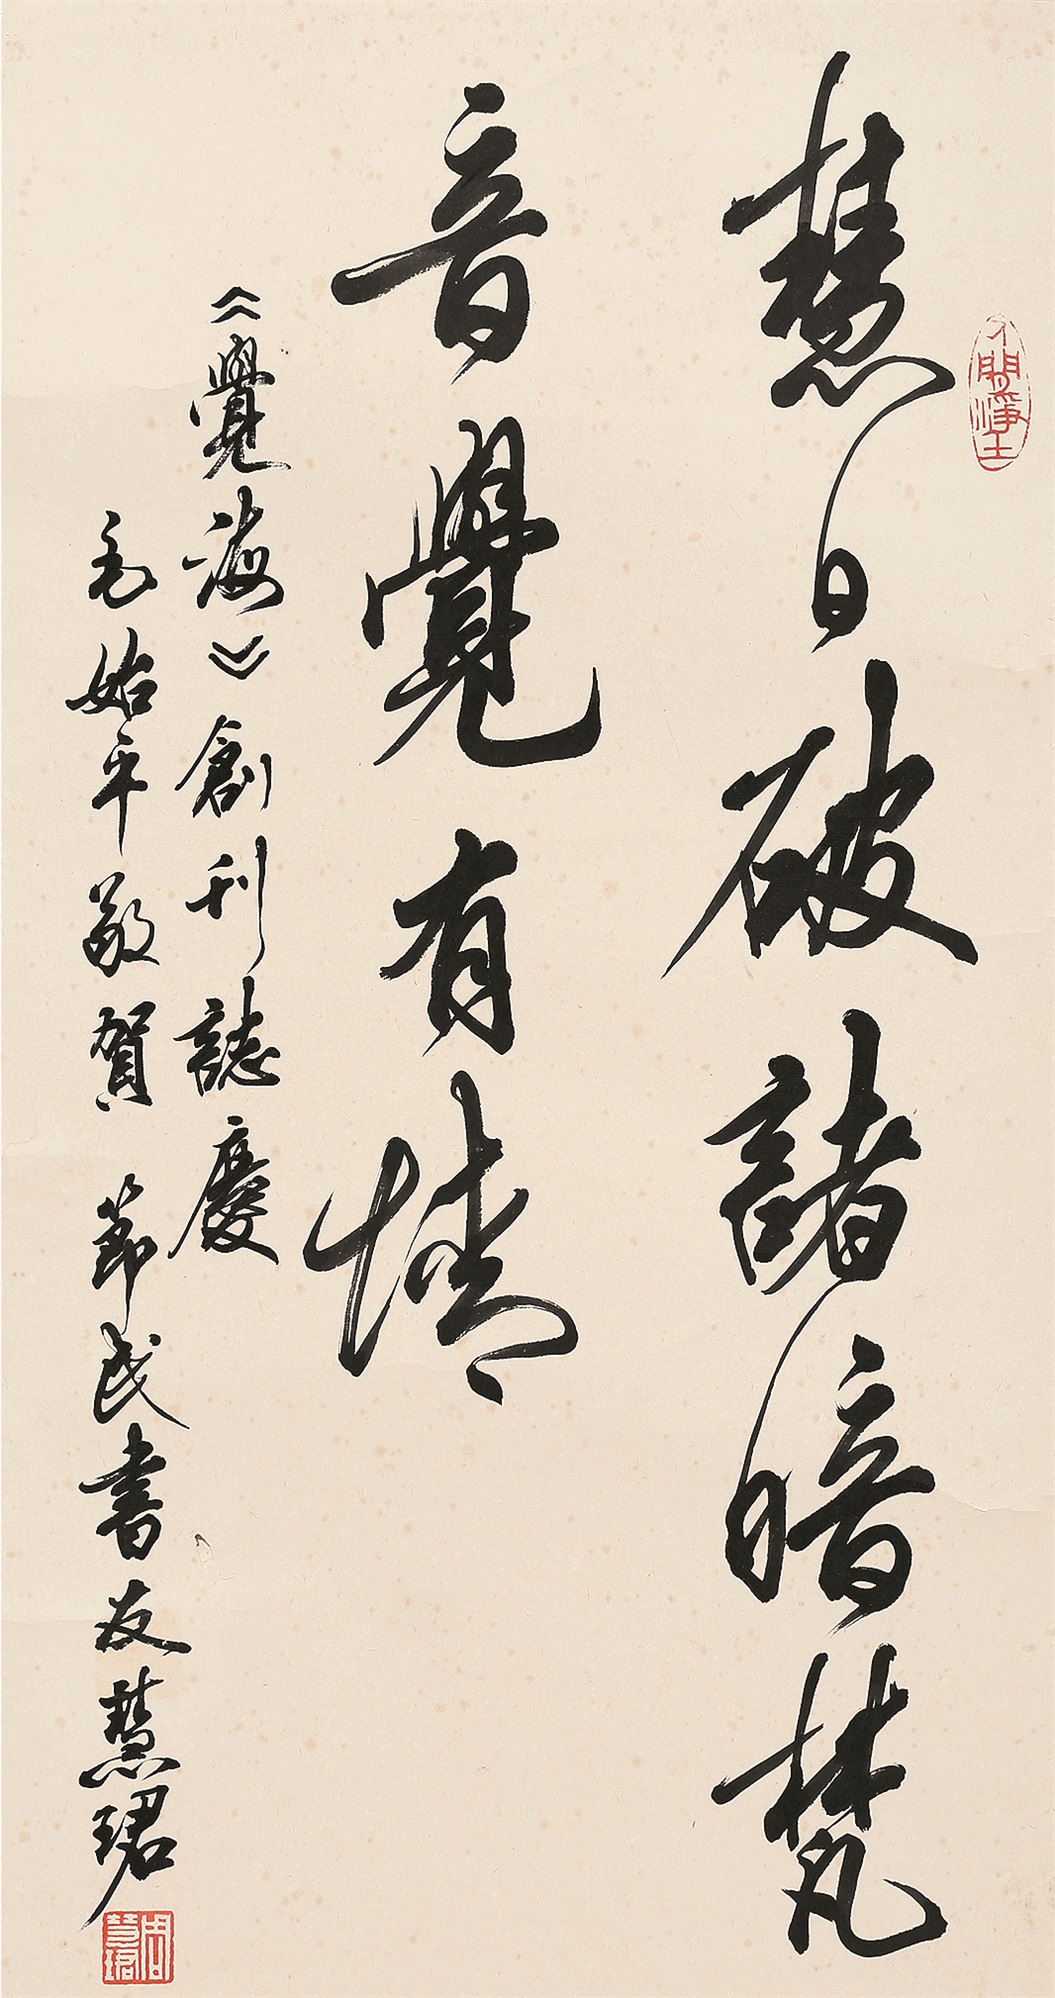 慧日破諸暗梵
音覺有情
《覺海》創刊誌慶
毛始平敬賀 節民書友慧珺
人間淨土
周慧珺